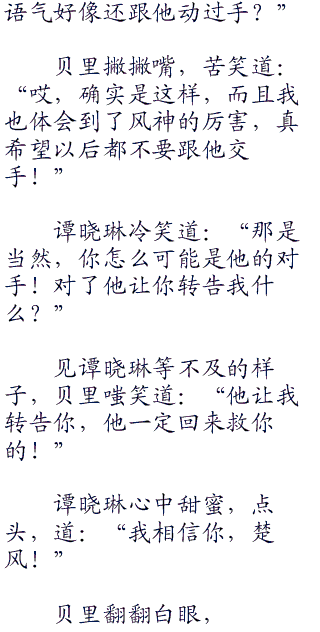 语气好像还跟他动过手？”
贝里撇撇嘴，苦笑道：
“哎，确实是这样，而且我
也体会到了风神的厉害，真
希望以后都不要跟他交
手！”
谭晓琳冷笑道：“那是
当然，你怎么可能是他的对
手！对了他让你转告我什
么？”
见谭晓琳等不及的样
子，贝里嗤笑道：“他让我
转告你，他一定回来救你
的！”
谭晓琳心中甜蜜，点
头，道：“我相信你，楚
风！”
贝里翻翻白眼，